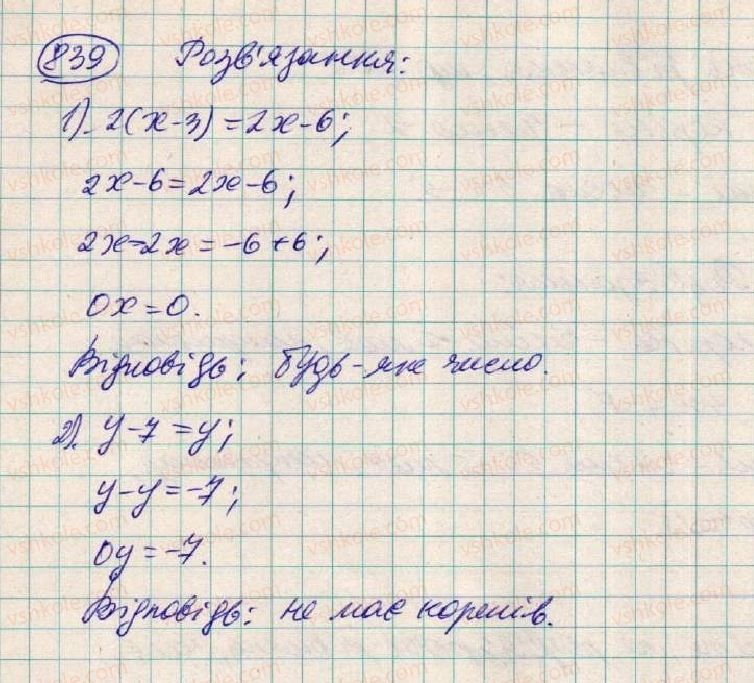 839 Розв'язання:
1). 2(x-3) = 2x-6;
2x-6=2x-6;
2x-2x = -6+6;
0x=0.
Відповідь: будь-яке число.
2). y-7=y;
y-y=-7;
0y=-7.
Відповідь: не має коренів.